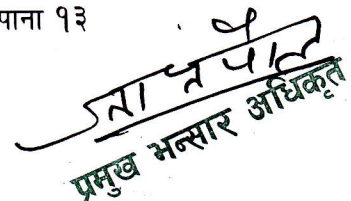 पाना १३
प्रमुख भन्सार अधिकृत